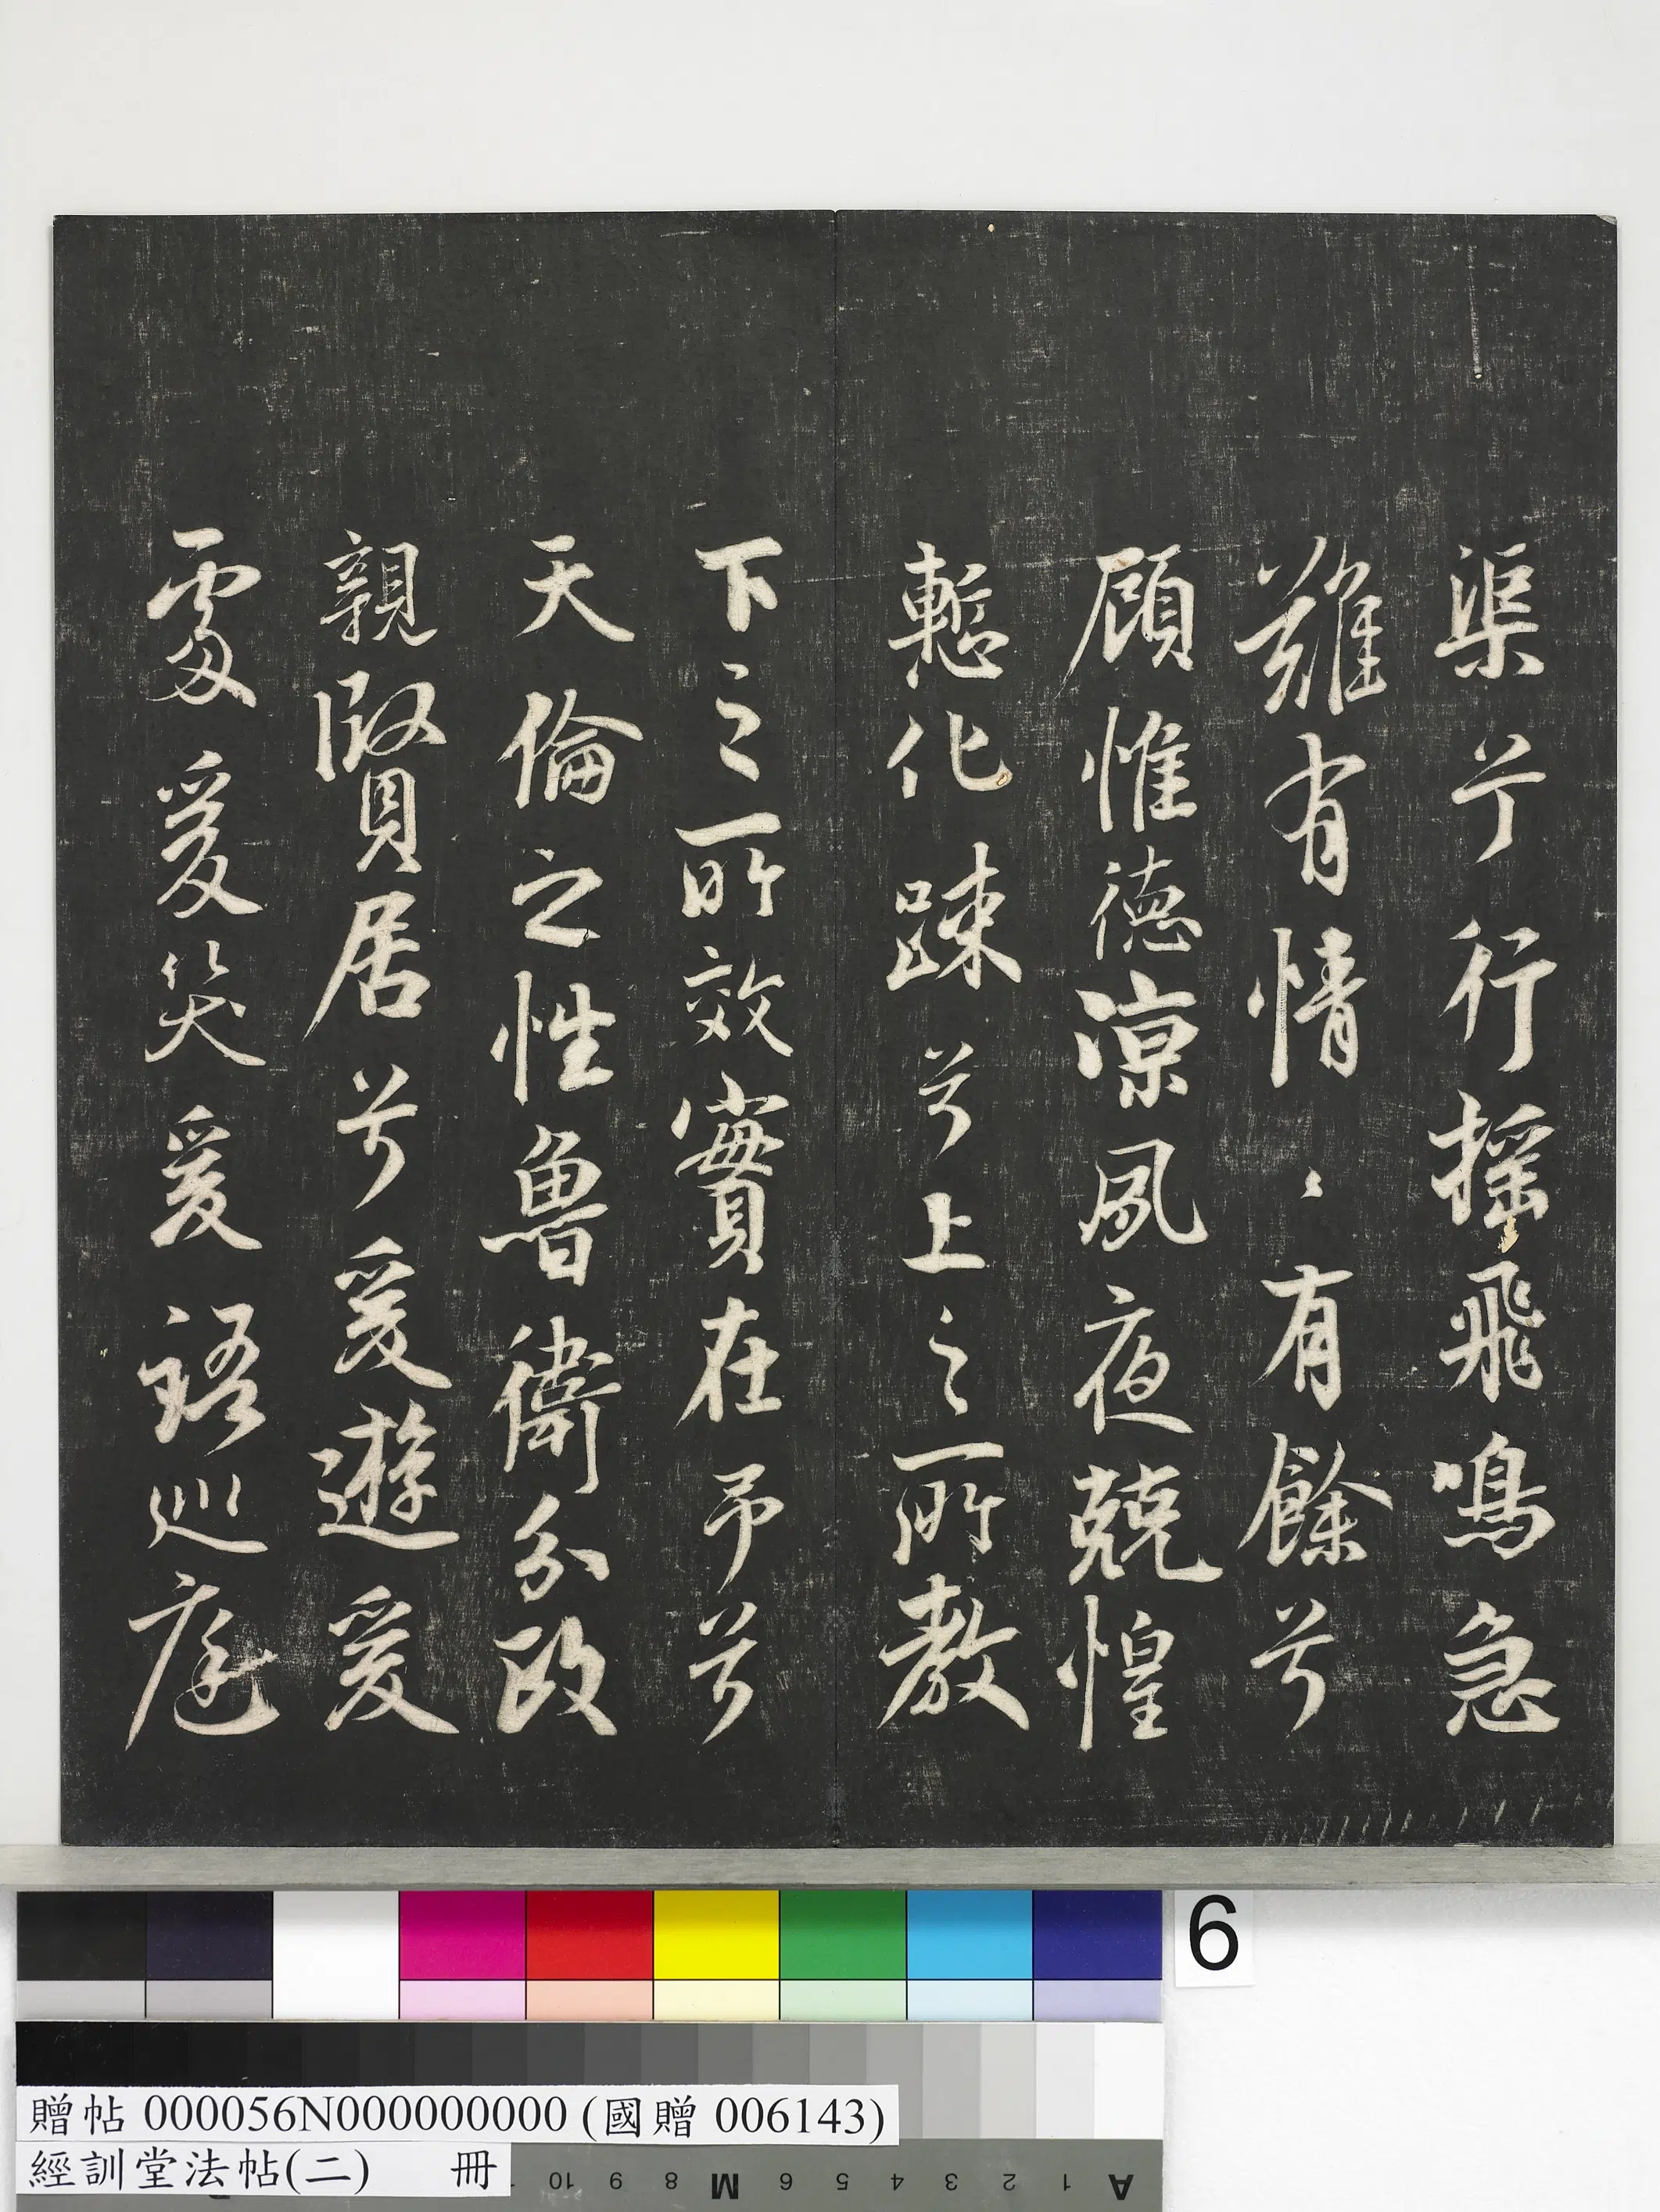 渠兮行搖飛鳴急
難有情〻有餘兮
顧惟德涼夙夜兢惶
慙化踈兮上之所教
下之所效實在予兮
天倫之性魯衛分政
親賢居兮爰遊爰
處爰笑爰語巡庭
6
贈帖 000056N000000000 (國贈 006143)
經訓堂法帖(二) 冊
10 9 8 M 6 5 4 3 2 1 A